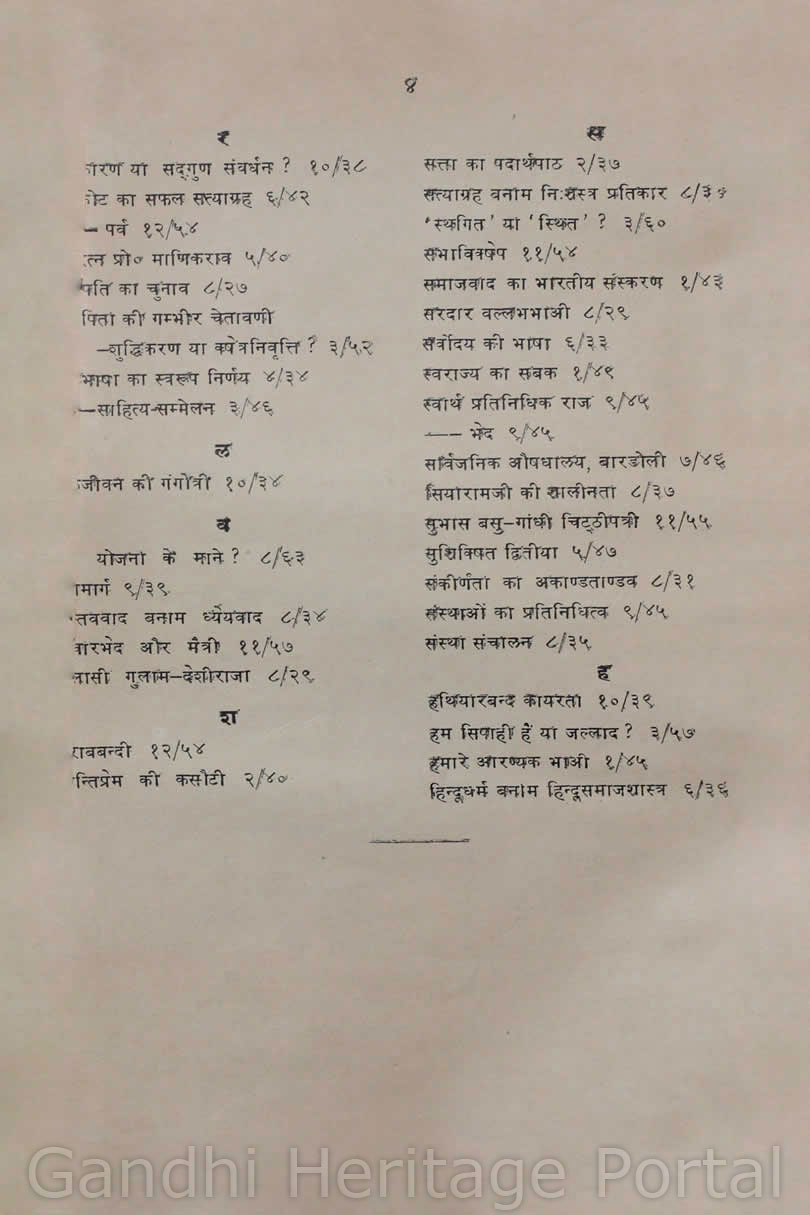 ४
र
सद्‌गुण संवर्धन ? १०/३८
का सफल सत्याग्रह ६/४२
— पर्व १२/५४
प्रो० माणिकराव ५/४०
का चुनाव ८/२७
पिता की गम्भीर चेतावणी
—शुद्धिकरण या क्षेत्रनिवृत्ति ? ३/५२
भाषा का स्वरूप निर्णय ४/३४
—साहित्य-सम्मेलन ३/४६
ल
जीवन की गंगोत्री १०/३४
व
योजना के माने ? ८/६३
९/३९
बनाम ध्येयवाद ८/३४
और मैत्री ११/५७
गुलाम—देशीराजा ८/२९
श
१२/५४
की कसौटी २/४०
स
सत्ता का पदार्थपाठ २/३७
सत्याग्रह बनाम निःशस्त्र प्रतिकार
‘स्थगित’ या ‘स्थित’ ? ३/६०
सभाविक्षेप ११/५४
समाजवाद का भारतीय संस्करण १/४३
सरदार वल्लभभाअी ८/२९
सर्वोदय की भाषा ६/३३
स्वराज्य का सबक १/४९
स्वार्थ प्रतिनिधिक राज ९/४५
—— भेद ९/४५
सार्वजनिक औषधालय, बारडोली ७/४६
सियारामजी की शालीनता ८/३७
सुभास बसु–गांधी चिट्ठीपत्री ११/५५
सुशिक्षित द्वितीया ५/४७
संकीर्णता का अकाण्डताण्डव ८/३१
संस्थाओं का प्रतिनिधित्व ९/४५
संस्था संचालन ८/३५
ह
हथियारबन्द कायरता १०/३९
हम सिपाही हैं या जल्लाद ? ३/५७
हमारे आरण्यक भाअी १/४५
हिन्दूधर्म बनाम हिन्दूसमाजशास्त्र ६/३६
Gandhi Heritage Portal